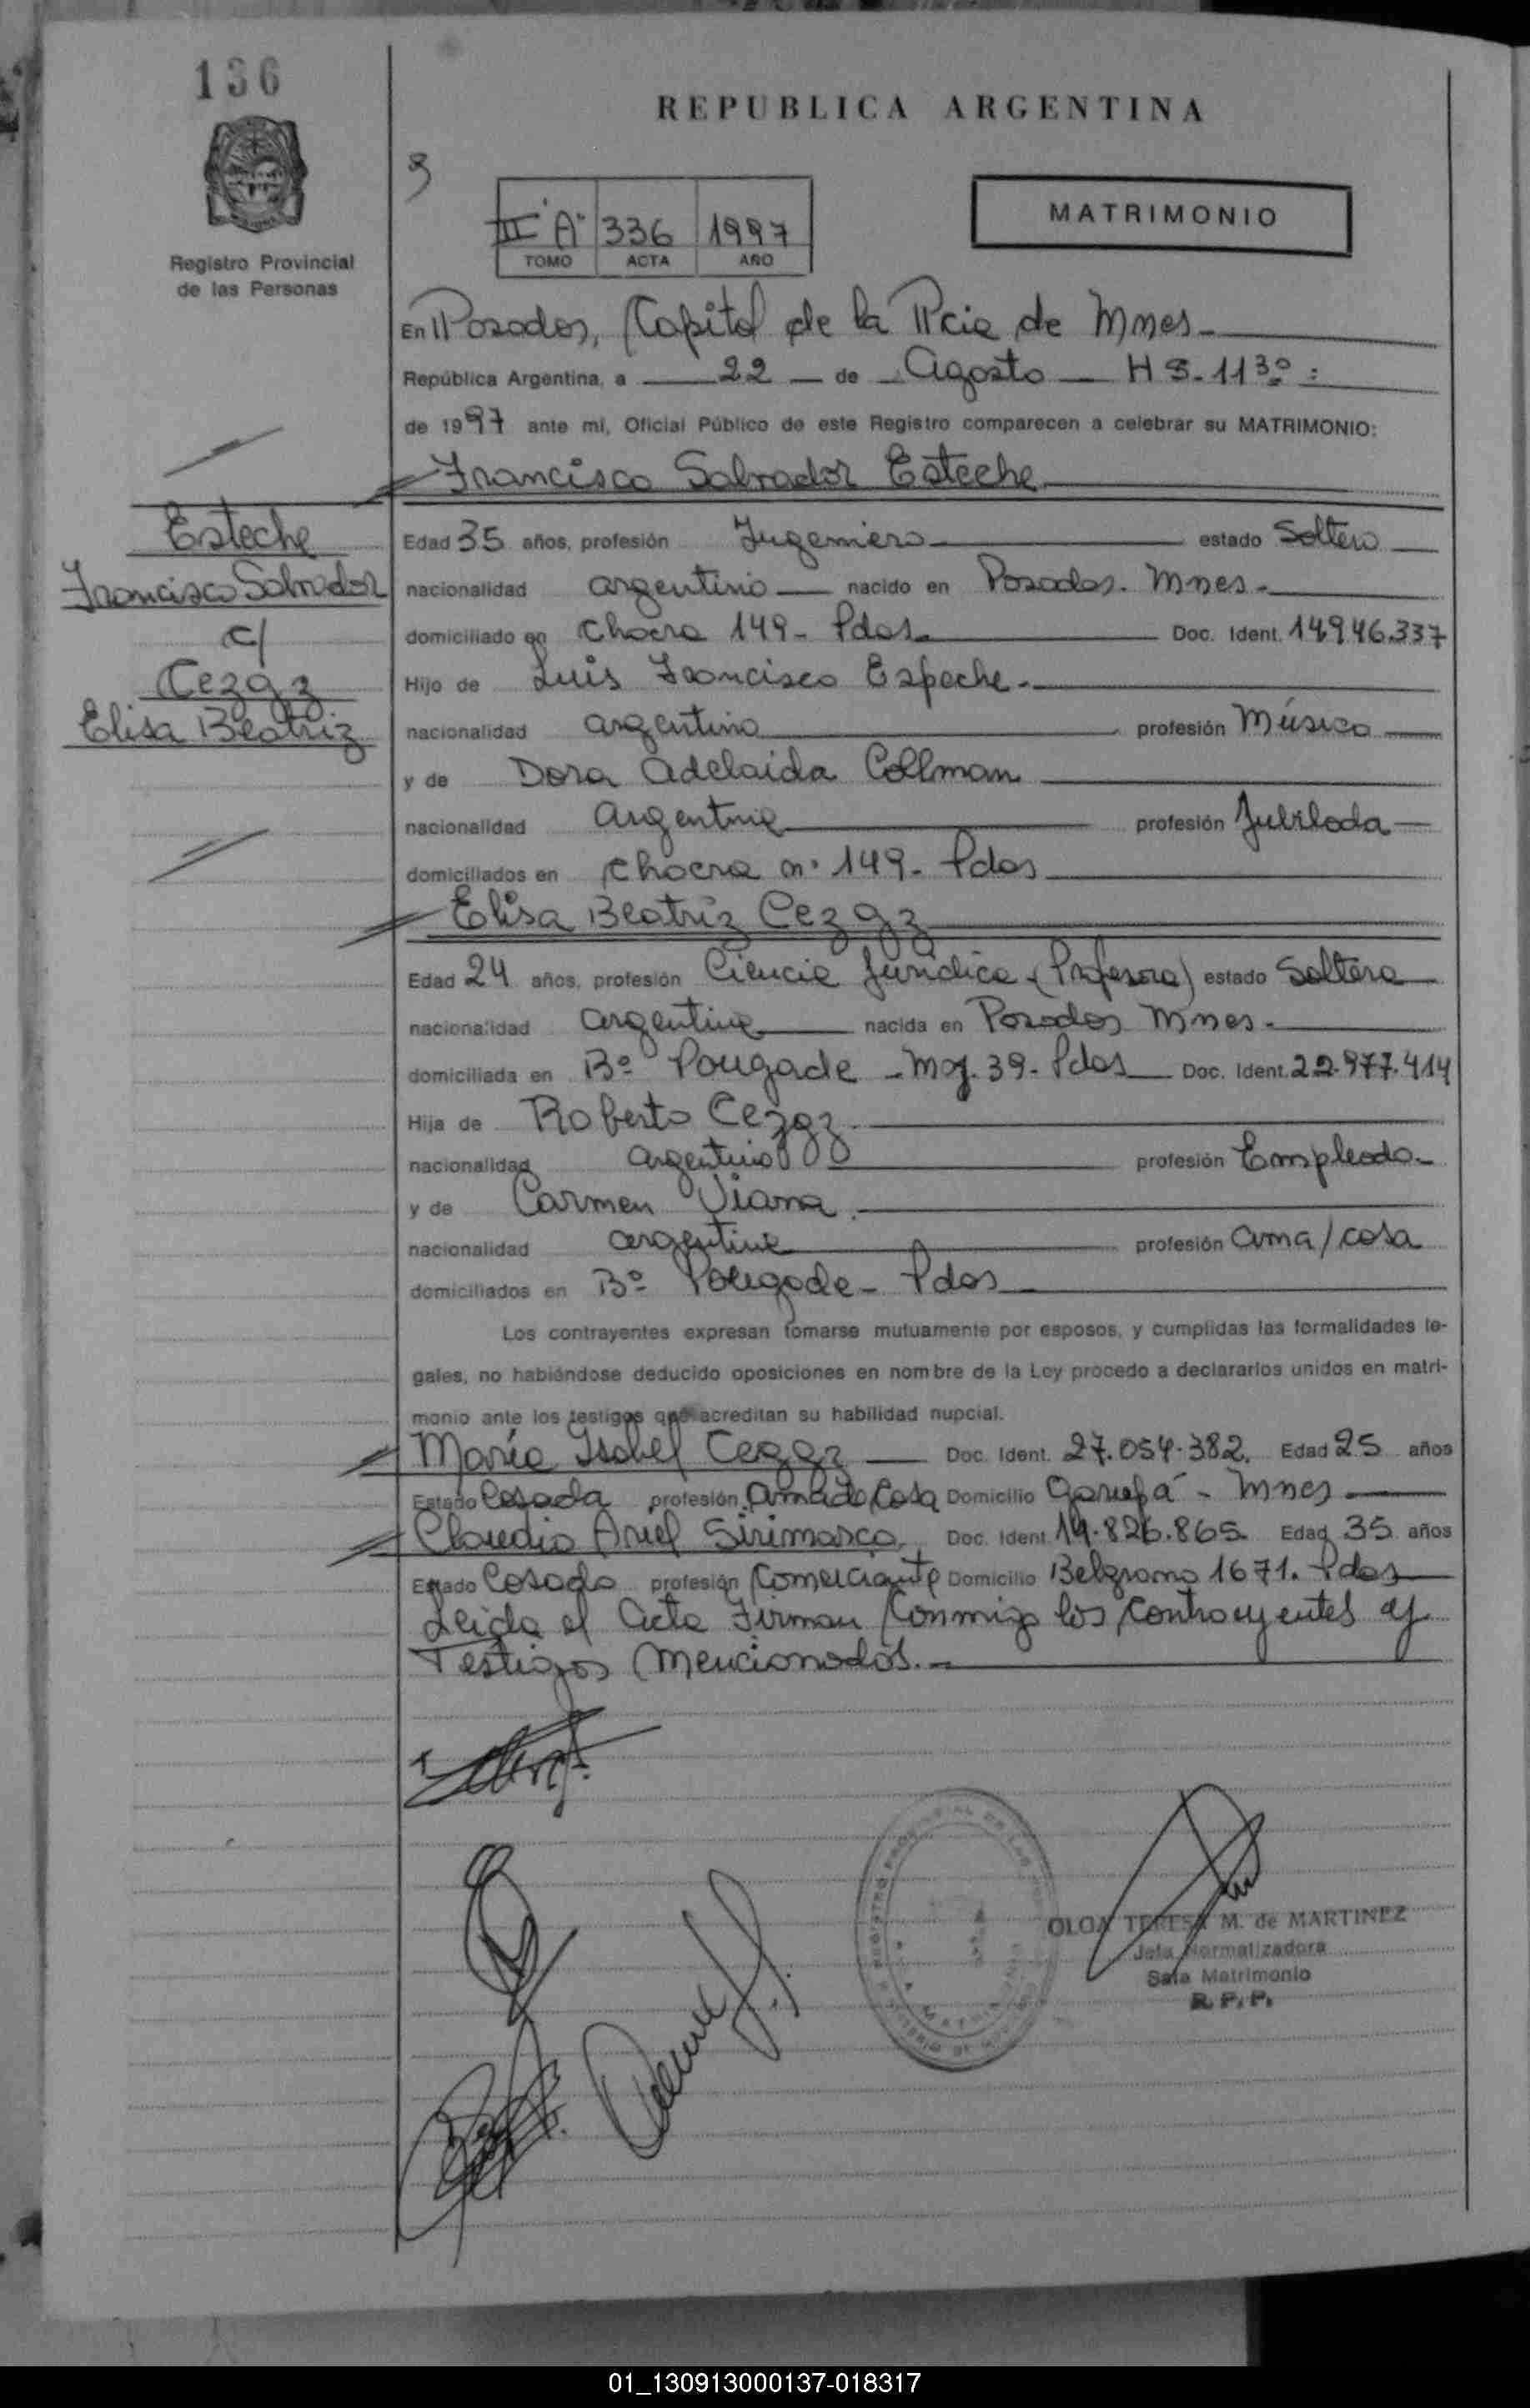 136
REPUBLICA ARGENTINA
Registro Provincial
de las Personas
III "A" 336 1997
TOMO ACTA AÑO
MATRIMONIO
En Posadas, Capital de la Pcia de Mnes
República Argentina, a 22 de Agosto HS. 11 30
de 1997 ante mí, Oficial Público de este Registro comparecen a celebrar su MATRIMONIO:
Francisco Salvador Esteche
Esteche
Francisco Salvador
c/
Cezgz
Elisa Beatriz
Edad 35 años, profesión Ingeniero estado Soltero
nacionalidad argentino nacido en Posadas. Mnes.
domiciliado en Chacra 149 - Pdas. Doc. Ident. 14.946.337
Hijo de Luis Francisco Espeche.
nacionalidad argentino profesión Músico
y de Dora Adelaida Collman
nacionalidad argentina profesión Jubilada
domiciliados en Chacra n° 149 - Pdas
Elisa Beatriz Cezgz
Edad 24 años, profesión Ciencia Jurídica (Profesora) estado Soltera
nacionalidad argentina nacida en Posadas Mnes.
domiciliada en B° Pougade - Mz. 39 - Pdas Doc. Ident. 22.977.414
Hija de Roberto Cezgz
nacionalidad argentino profesión Empleado.
y de Carmen Viana.
nacionalidad argentina profesión ama/casa
domiciliados en B° Pougade - Pdas
Los contrayentes expresan tomarse mutuamente por esposos, y cumplidas las formalidades le-
gales, no habiéndose deducido oposiciones en nombre de la Ley procedo a declararlos unidos en matri-
monio ante los testigos que acreditan su habilidad nupcial.
María Isabel Cezgz Doc. Ident. 27.054.382. Edad 25 años
Estado Casada profesión Ama de Casa Domicilio Garupá - Mnes
Claudio Ariel Sirimarco Doc. Ident. 14.826.865 Edad 35 años
Estado Casado profesión Comerciante Domicilio Belgrano 1671. Pdas
Leida el Acta Firman Conmigo los contrayentes y
Testigos Mencionados.
OLGA TERESA M. de MARTINEZ
Jefa Normalizadora
Sala Matrimonio
R. P. P.
01_130913000137-018317